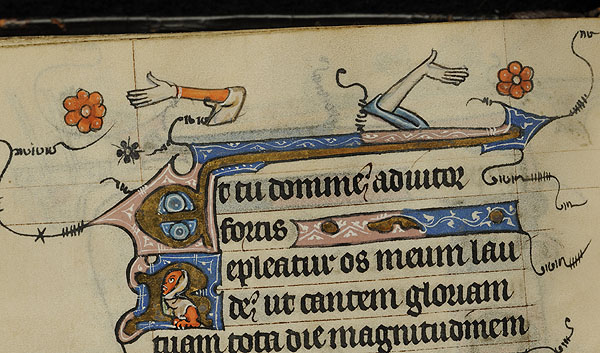 Et tu domine adiutor
fortis
Repleatur os meum lau
de ut cantem gloriam
tuam tota die magnitudinem